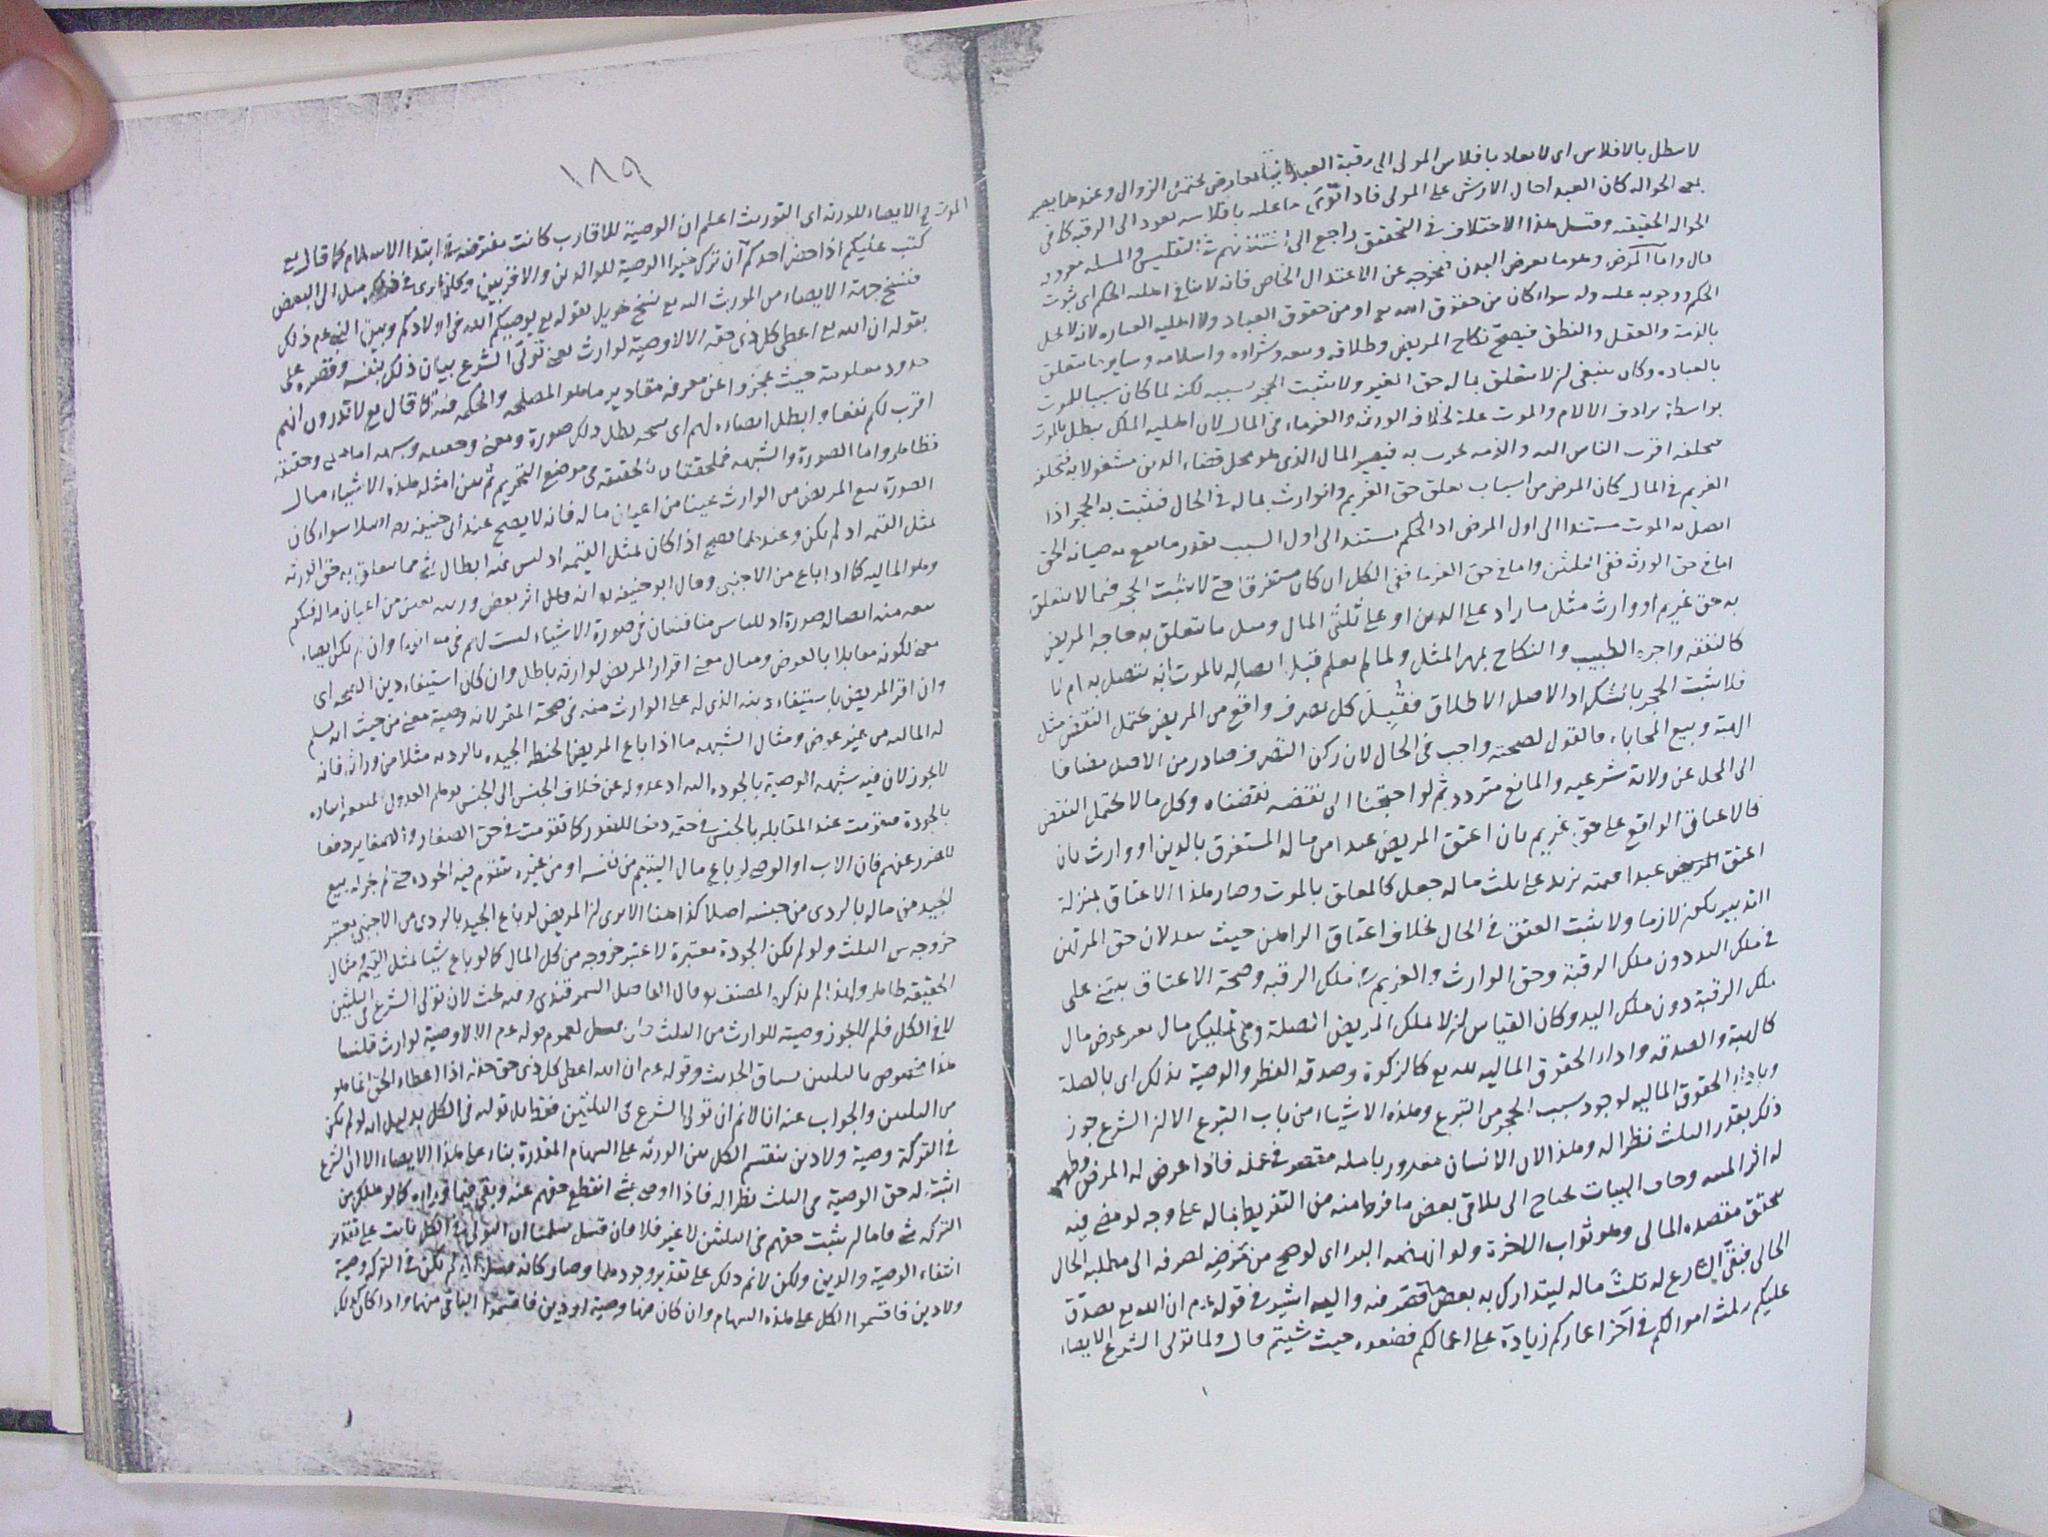 لا سطل بالافلاس اى لا يعاد بافلاس المولى الى رقبة العبد لعارض يحتمل الزوال وعندهما يصير
بمعنى الحواله كان العبد احال الارش على المولى فاذا توى ما عليه بافلاسه يعود الى الرقبة كما فى
الحواله الحقيقيه وقيل هذا الاختلاف فى التحقيق راجع الى التفليس والمسله معروفه
قال واما المرض وهو ما يعرض البدن فيخرجه عن الاعتدال الخاص فانه لا ينافى اهليه الحكم اى ثبوت
الحكم ووجوبه عليه وله سواء كان من حقوق الله تع او من حقوق العباد ولا اهليه العباره لانه لا يخل
بالذمة والعقل والنطق فيصح نكاح المريض وطلاقه وبيعه وشراوه واسلامه وساير ما يتعلق
بالعباده وكان ينبغى ان لا يتعلق بماله حق الغير ولا يثبت الحجر بسببه لكنه لما كان سببا للموت
بواسطة ترادف الالام والموت علة لخلافه الورثة والغرماء فى المال لان اهليه الملك يبطل بالموت
فيخلفه اقرب الناس اليه والذمه تخرب به فيصير المال الذى هو محل قضاء الدين مشغولا به فيخلفه
الغريم فى المال كان المرض من اسباب تعلق حق الغريم والوارث بماله فى الحال فيثبت به الحجر اذا
اتصل به الموت مستندا الى اول المرض اذ الحكم يستند الى اول السبب بقدر ما يقع به صيانه الحق
اما فى حق الورثه ففى الثلثين واما فى حق الغرما ففى الكل ان كان مستغرقا حتى لا يثبت الحجر فيما لا يتعلق
به حق غريم او وارث مثل ما زاد على الدين او على ثلثى المال ومثل ما يتعلق به حاجه المريض
كالنفقه واجره الطبيب والنكاح بمهر المثل ولما لم يعلم قبل اتصاله بالموت انه يتصل به ام لا
فلا يثبت الحجر بالشك اذ الاصل الاطلاق فقيل كل تصرف واقع من المريض يحتمل النقض مثل
الهبة وبيع المحاباه فالقول لصحته واجب فى الحال لان ركن التصرف صادر من الاصل مضافا
الى المحل عن ولاية شرعيه والمانع متردد ثم لو احتجنا الى نقضه نقضناه وكل ما لا يحتمل النقض
كالاعتاق الواقع على حق غريم بان اعتق المريض عبدا من ماله المستغرق بالدين او وارث بان
اعتق المريض عبدا قيمته تزيد على ثلث ماله جعل كالمعلق بالموت وصار هذا الاعتاق بمنزلة
التدبير يكون لازما ولا يثبت العتق فى الحال بخلاف اعتاق الراهن حيث ينفد لان حق المرتهن
فى ملك اليد دون ملك الرقبة وحق الوارث والغريم فى ملك الرقبه وصحة الاعتاق يبتنى على
ملك الرقبة دون ملك اليد وكان القياس ان لا يملك المريض الصلة وهى تمليك مال بغير عوض مال
كالهبة والصدقه واداء الحقوق الماليه لله تع كالزكوة وصدقه الفطر والوصية بذلك اى بالصلة
وباداء الحقوق الماليه لوجود سبب الحجر عن التبرع وهذه الاشياء من باب التبرع الا ان الشرع جوز
ذلك بقدر الثلث نظرا له وهذا لان الانسان مغرور بامله مقصر فى عمله فاذا عرض له المرض وظهر
له اثر المنيه وخاف البيات يحتاج الى تلافى بعض ما فرط منه من التفريط بماله على وجه لو مضى فيه
يتحقق مقصده المالى وهو ثواب الاخرة ولو انهضه البراء اى لو صح من مرضه لصرفه الى مطلبه الحالى
الحالى فبقى الشارع له ثلث ماله ليتدارك به بعض ما قصر فيه واليه اشير فى قوله عم ان الله تع تصدق
عليكم بثلث اموالكم فى آخر اعماركم زيادة على اعمالكم فضعوه حيث شيتم قال ولما تولى الشرع الايصاء
١٨٩
الموت فى الايصاء للورثه اى التوريث اعلم ان الوصية للاقارب كانت مفترضة فى ابتداء الاسلام كما قال تع
كتب عليكم اذا حضر احدكم الموت ان ترك خيرا الوصية للوالدين والاقربين وكان يجرى فى ذلك ميل الى البعض
فنسخ جهة الايصاء من المورث الله تع نسخ تحويل بقوله تع يوصيكم الله فى اولادكم وبين النبى عم ذلك
بقوله ان الله تع اعطى كل ذى حق حقه الا لا وصية لوارث يعنى تولى الشرع بيان ذلك بنفسه وقصره على
حدود معلومة حيث عجزوا عن معرفه مقادير ما هو المصلحه والحكمه فيه كما قال تع لا تدرون ايهم
اقرب لكم نفعا وابطل ايصاءه لهم اى نسخه بطل ذلك صورة ومعنى وحقيقه وشبهه اما المعنى وحقيقته
فظاهر واما الصورة والشبهه فملحقتان بالحقيقه فى موضع التحريم ثم بين امثله هذه الاشياء مثال
الصورة بيع المريض من الوارث عينا من اعيان ماله فانه لا يصح عند ابى حنيفه رحه اصلا سواء كان
بمثل القيمه او لم يكن وعندهما يصح اذا كان بمثل القيمه اذ ليس فيه ابطال شئ مما يتعلق به حق الورثه
وهو الماليه كما اذا باع من الاجنبى وقال ابو حنيفه رح انه اثر بعض ورثته بعين من اعيان ماله فيكم
بيعه منه ايصاله صورة اذ للناس مناقشات فى صورة الاشياء ليست لهم فى معانيها وان لم يكن ايصاء
معنى لكونه مقابلا بالعوض ومثال معنى اقرار المريض لوارثه باطل وان كان استيفاء دين الصحه اى
وان اقر المريض باستيفاء دينه الذى له على الوارث منه فى صحة المقر لانه وصية معنى من حيث انه يسلم
له الماليه من غير عوض ومثال الشبهه ما اذا باع المريض الحنطه الجيده بالرديه مثلا من وارثه فانه
لا يجوز لان فيه شبهه الوصية بالجوده اليه اذ عدوله عن خلاف الجنس الى الجنس يوهم العدول لمنعه ايثاره
بالجودة فتقومت عند المقابله بالجنس فى حقه دفعا للضرر كما تقومت فى حق الصغار والاصغاير دفعا
للضرر عنهم فان الاب او الوصى لو باع مال اليتيم من نفسه او من غيره يتقوم فيه الجوده حتى لم يجز له بيع
الجيد من ماله بالردى من جنسه اصلا كذا هنا الا ترى ان المريض لو باع الجيد بالردى من الاجنبى يعتبر
خروجه من الثلث ولو لم يكن الجودة معتبرة لا عتبر خروجه من كل المال كما لو باع شيئا بمثل القيمه ومثال
الحقيقه ظاهر ولهذا لم يذكره المصنف رح قال الفاضل السمرقندى وفيه بحث لان تولى الشرع فى الثلثين
لا فى الكل فلم لا يجوز وصية للوارث من الثلث فان قيل لعموم قوله عم الا لا وصية لوارث قلنا
هذا مخصوص بالثلثين بسياق الحديث وقوله عم ان الله اعطى كل ذى حق حقه اذ اعطاء الحق انما هو
من الثلثين والجواب عنه انا لا نم ان تولى الشرع فى الثلثين فقط بل توليه فى الكل بدليل انه لو لم يكن
فى التركة وصية ولا دين ينقسم الكل بين الورثه على السهام المقدرة بناء على هذا الايصاء الا ان الشرع
اثبت له حق الوصية من الثلث نظرا له فاذا اوصى بشئ انقطع حقهم عنه وبقى فيما وراءه كما لو هلك من
التركه شئ فاما لم يثبت حقهم فى الثلثين لا غير فلا فان قيل سلمنا ان التولى فى الكل ثابت على تقدير
انتفاء الوصية والدين ولكن لا نم ذلك على تقدير وجودهما وصار كانه قيل ان لم يكن فى التركه وصية
ولا دين فاقسموا الكل على هذه السهام وان كان فيها وصية او دين فاقسموا الباقى منهما واذا كان كذلك